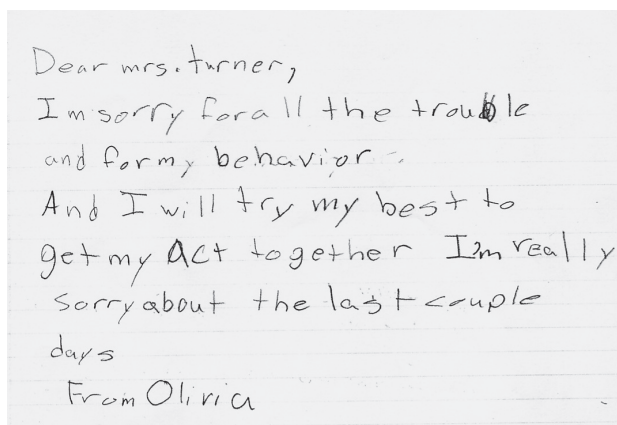 Dear mrs. turner,
Im sorry for all the trouble
and for my behavior.
And I will try my best to
get my Act together I'm really
sorry about the last couple
days
From Olivia